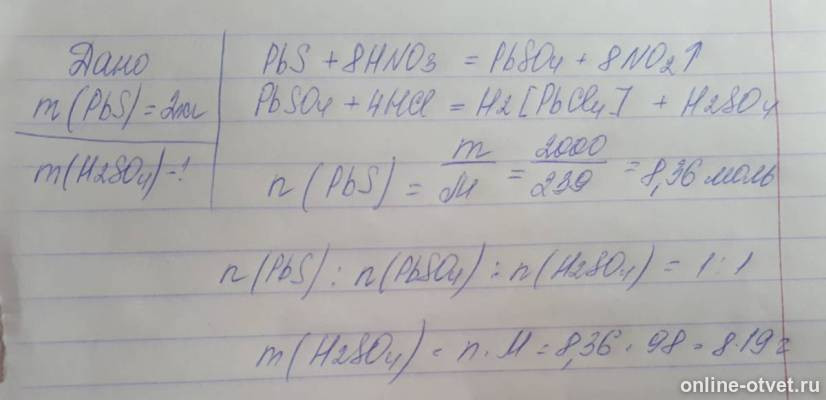 Дано
m(PbS) = 2кг
m(H2SO4) - ?
PbS + 8HNO3 = PbSO4 + 8NO2↑
PbSO4 + 4HCl = H2[PbCl4] + H2SO4
n(PbS) = m/M = 2000/239 = 8,36 моль
n(PbS) : n(PbSO4) : n(H2SO4) = 1 : 1
m(H2SO4) = n · M = 8,36 · 98 = 819 г
online-otvet.ru